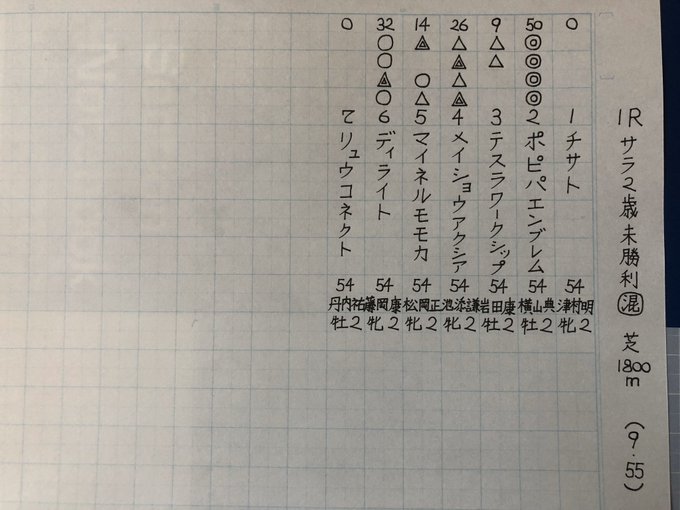 1R サラ2歳未勝利 混 芝1800m (9.55)
0 1 チサト 54 津村明 牝2
50 ◎◎◎◎ 2 ポピパエンブレム 54 横山典 牡2
9 △△ 3 テスラワークシップ 54 岩田康 牡2
26 △▲△▲ 4 メイショウアクシア 54 池添謙 牝2
14 ▲ ○△ 5 マイネルモモカ 54 松岡正 牝2
32 ○○▲○ 6 ディライト 54 藤岡康 牝2
0 7 リュウコネクト 54 丹内祐 牡2